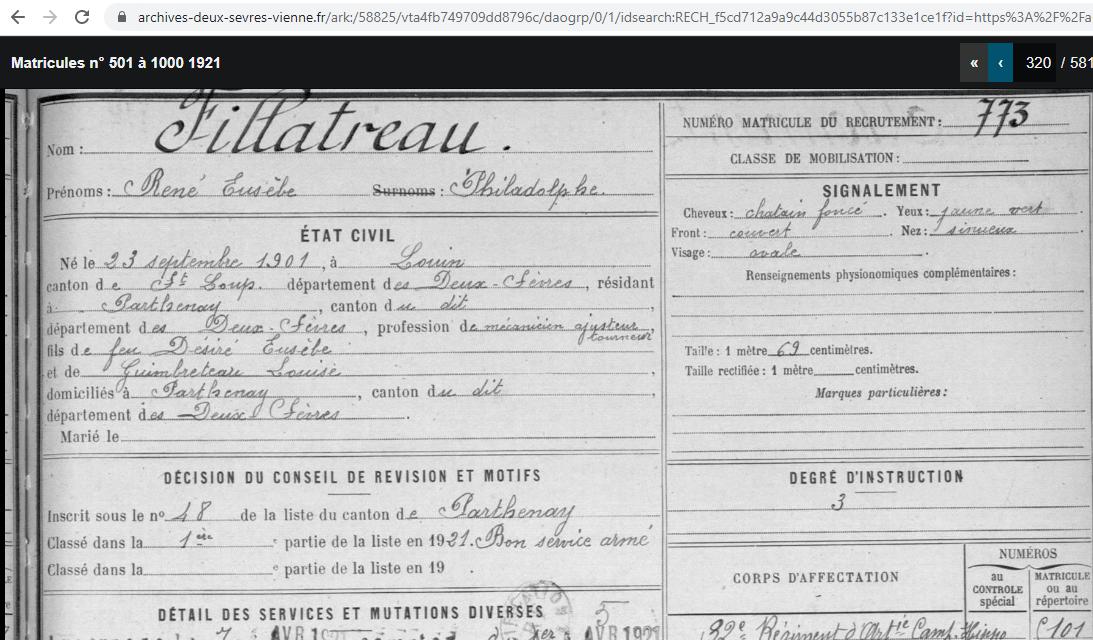 archives-deux-sevres-vienne.fr/ark:/58825/vta4fb749709dd8796c/daogrp/0/1/idsearch:RECH_f5cd712a9a9c44d3055b87c133e1ce1f?id=https%3A%2F%2Fa
Matricules n° 501 à 1000 1921
« ‹ 320 / 581
Nom : Fillatreau.
Prénoms : René Eusèbe Surnoms : Philadelphe.
ÉTAT CIVIL
Né le 23 septembre 1901, à Louin
canton de St Loup. département des Deux-Sèvres, résidant
à Parthenay, canton du dit,
département des Deux-Sèvres, profession de mécanicien ajusteur,
tourneur
fils de feu Désiré Eusèbe
et de Guimbreteau Louise,
domiciliés à Parthenay, canton du dit
département des Deux-Sèvres.
Marié le
DÉCISION DU CONSEIL DE REVISION ET MOTIFS
Inscrit sous le n° 48 de la liste du canton de Parthenay
Classé dans la 1ère partie de la liste en 1921. Bon service armé
Classé dans la e partie de la liste en 19 .
DÉTAIL DES SERVICES ET MUTATIONS DIVERSES
NUMÉRO MATRICULE DU RECRUTEMENT : 773
CLASSE DE MOBILISATION :
SIGNALEMENT
Cheveux : chatain foncé. Yeux : jaune vert
Front : couvert. Nez : sinueux.
Visage : ovale.
Renseignements physionomiques complémentaires :
Taille : 1 mètre 69 centimètres.
Taille rectifiée : 1 mètre centimètres.
Marques particulières :
DEGRÉ D'INSTRUCTION
3
CORPS D'AFFECTATION
NUMÉROS
au CONTROLE spécial
MATRICULE ou au répertoire
Régiment d'Artie Camp.